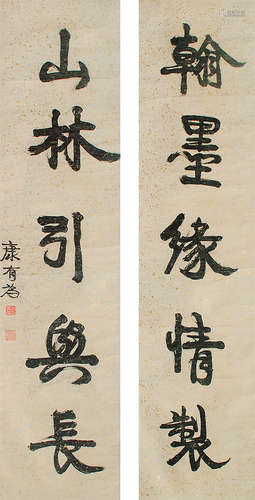 翰墨緣情製
山林引興長
康有為